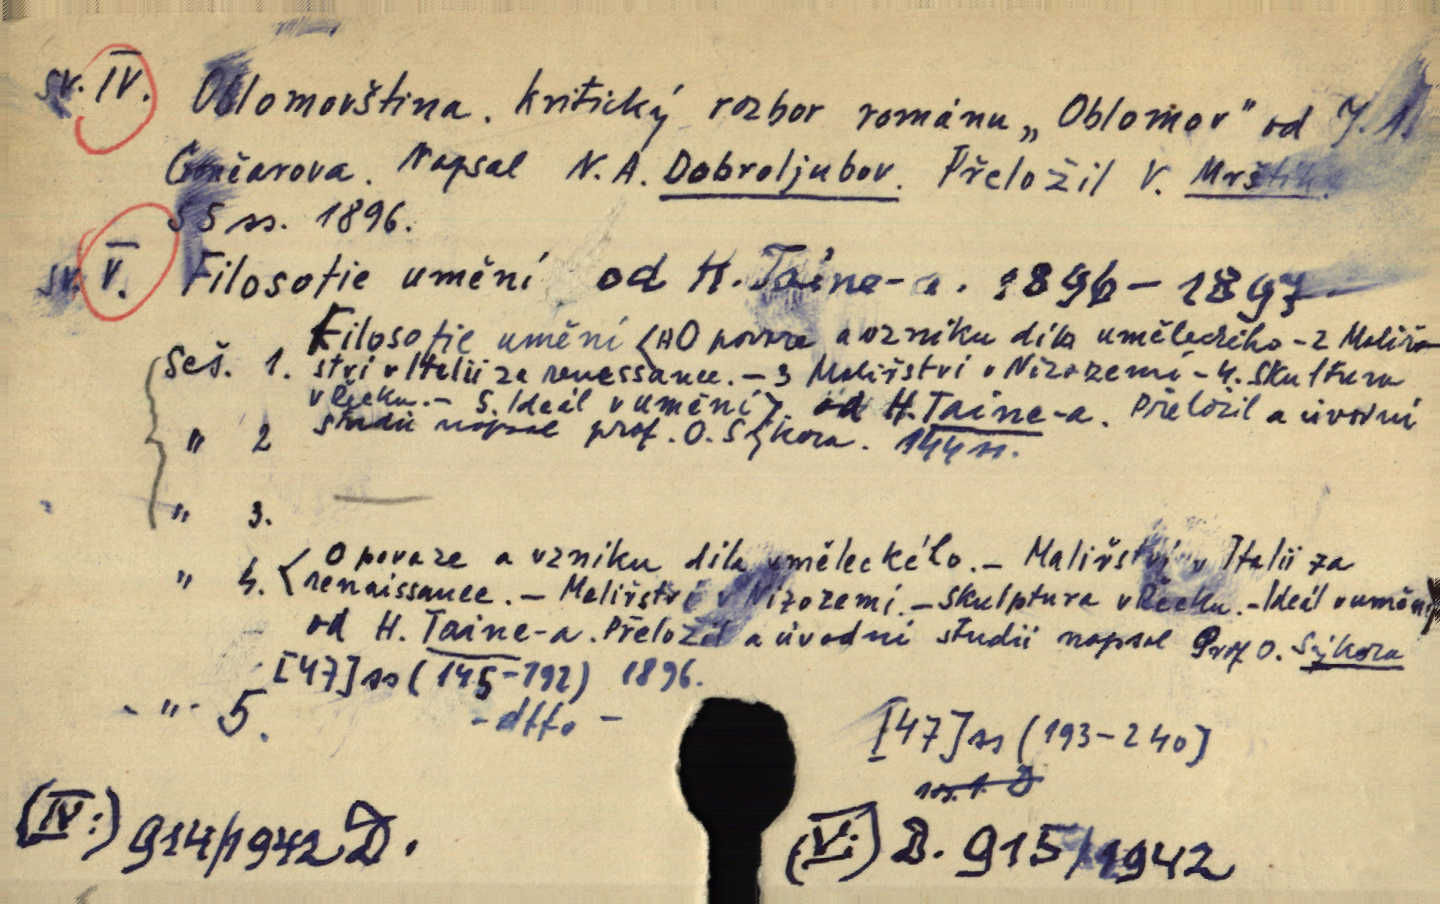 sv. IV. Oblomovština. Kritický rozbor románu „Oblomov" od J. I.
Gončarova. Napsal N. A. Dobroljubov. Přeložil V. Mrštík.
55 ss. 1896.
sv. V. Filosofie umění od H. Taine-a. 1896 – 1897.
Filosofie umění O povaze a vzniku díla uměleckého – 2 Malíř-
Seš. 1. ství v Itálii za renessance. – 3 Malířství v Nizozemí – 4. Skulptura
v Řecku. – 5. Ideál v umění). od H. Taine-a. Přeložil a úvodní
" 2 studii napsal prof. O. Sýkora. 144 ss.
" 3.
O povaze a vzniku díla uměleckého. – Malířství v Itálii za
" 4. renaissance. – Malířství v Nizozemí. – Skulptura v Řecku. – Ideál v umění
od H. Taine-a. Přeložil a úvodní studii napsal Prof O. Sýkora
[47] ss (145–192) 1896.
" 5. - dtto - [47] ss (193–240)
(IV.) 914/1942 D. (V.) D. 915/1942